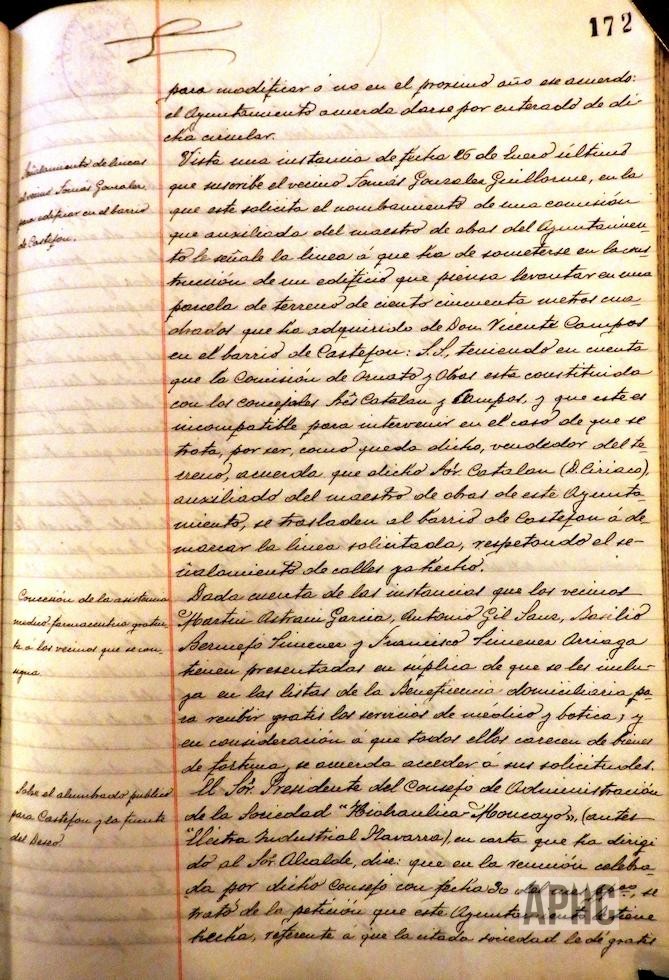 172
para modificar ó no en el proximo año ese acuerdo:
el Ayuntamiento acuerda darse por enterado de di
cha circular.
Señalamiento de lineas
al vecino Tomás Gonzalez
para edificar en el barrio
de Castejon.
Vista una instancia de fecha 26 de Enero último
que suscribe el vecino Tomás Gonzalez Guillorme, en la
que este solicita el nombramiento de una comisión
que auxiliada del maestro de obas del Ayuntamien-
to le señale la linea á que ha de someterse en la cons
trucción de un edificio que piensa levantar en una
parcela de terreno de ciento cincuenta metros cua
drados que ha adquirido de Don Vicente Campos
en el barrio de Castejon: S.S., teniendo en cuenta
que la Comisión de Ornato y Obras está constituida
con los concejales Sres Catalan y Campos, y que este es
incompatible para intervenir en el caso de que se
trata, por ser, como queda dicho, vendedor del te
rreno, acuerda que dicho Sor. Catalan (D. Ciriaco),
auxiliado del maestro de obras de este Ayunta-
miento, se trasladen al barrio de Castejon á de-
marcar la linea solicitada, respetando el se-
ñalamiento de calles ya hecho.
Concesión de la asistencia
medico farmaceutica gratui
ta á los vecinos que se con-
signa
Dada cuenta de las instancias que los vecinos
Martin Astrain Garcia, Antonio Gil Sanz, Basilio
Bermejo Jimenez y Francisco Jimenez Arriaga
tienen presentadas en suplica de que se les inclu-
ya en las listas de la Beneficencia domiciliaria pa-
ra recibir gratis los servicios de médico y botica; y
en consideración á que todos ellos carecen de bienes
de fortuna, se acuerda acceder á sus solicitudes.
Sobre el alumbrado publico
para Castejon y la fuente
del Deseo.
El Sor. Presidente del Consejo de Administración
de la Sociedad "Hidraulica Moncayo", (antes
"Electra Industrial Navarra), en carta que ha dirigi
do al Sor. Alcalde, dice: que en la reunión celebra-
da por dicho Consejo con fecha 30 de se
trató de la petición que este Ayuntamiento tiene
hecha, referente á que la citada sociedad le dé gratis
APHC